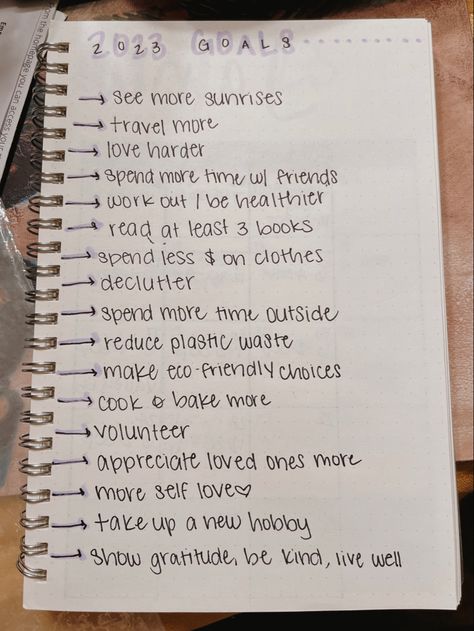 2023 GOALS
→ see more sunrises
→ travel more
→ love harder
→ spend more time w/ friends
→ work out / be healthier
→ read at least 3 books
→ spend less $ on clothes
→ declutter
→ spend more time outside
→ reduce plastic waste
→ make eco-friendly choices
→ cook & bake more
→ volunteer
→ appreciate loved ones more
→ more self love♡
→ take up a new hobby
→ show gratitude, be kind, live well